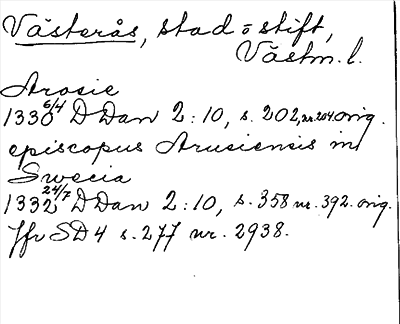 Västerås, stad o stift,
Västm. l.
Arosie
1330 6/4 D Dan 2:10, s. 202, nr. 204 orig.
episcopus Arusiensis in
Swecia
1332 24/7 D Dan 2:10, s. 358 nr. 392. orig.
Jfr SD 4 s. 277 nr. 2938.